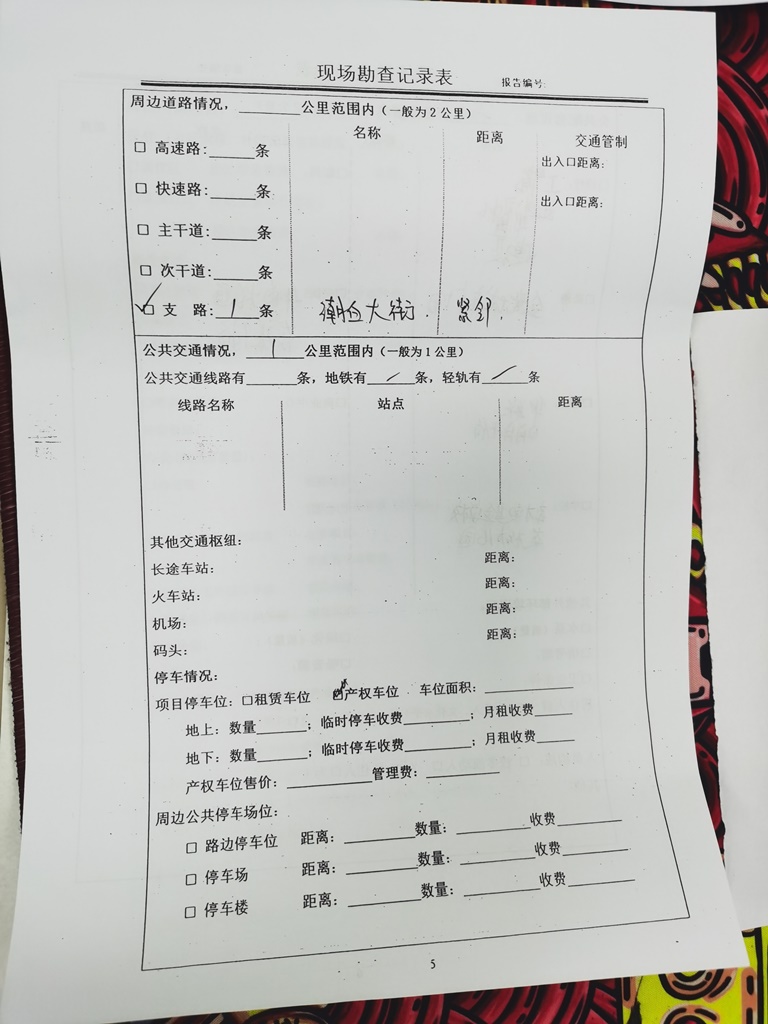 现场勘查记录表
报告编号:
周边道路情况，______公里范围内（一般为2公里）
名称 距离 交通管制
□ 高速路:_____条 出入口距离:
□ 快速路:_____条 出入口距离:
□ 主干道:_____条
□ 次干道:_____条
☑ 支 路: 1 条 大街. 紧邻.
公共交通情况，___1___公里范围内（一般为1公里）
公共交通线路有______条，地铁有__/__条，轻轨有__/__条
线路名称 站点 距离
其他交通枢纽:
长途车站: 距离:
火车站: 距离:
机场: 距离:
码头: 距离:
停车情况:
项目停车位: □租赁车位 ☑产权车位 车位面积:__________
地上: 数量______; 临时停车收费________; 月租收费_____
地下: 数量______; 临时停车收费________; 月租收费_____
产权车位售价:__________管理费:_________
周边公共停车场位:
□ 路边停车位 距离:________数量:_________收费________
□ 停车场 距离:________数量:_________收费________
□ 停车楼 距离:________数量:_________收费________
5